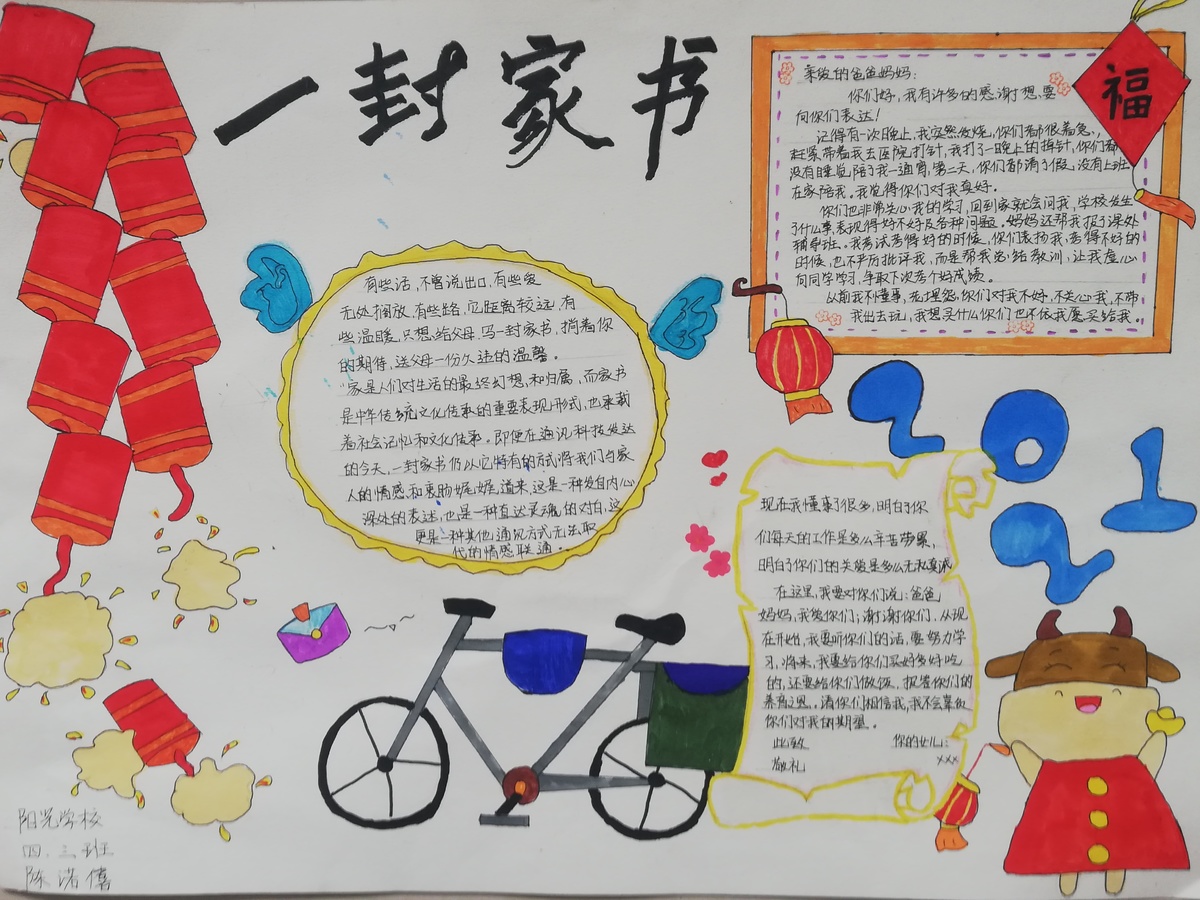 一封家书
福
亲爱的爸爸妈妈：
你们好，我有许多的感谢想要
向你们表达！
记得有一次晚上，我突然发烧，你们都很着急，
赶紧带着我去医院打针，我打了一晚上的掉针，你们都
没有睡觉陪了我一通宵，第二天，你们都请了假，没有上班
在家陪我。我觉得你们对我真好。
你们也非常关心我的学习，回到家就会问我，学校发生
了什么事表现得好不好及各种问题。妈妈还帮我报了课外
辅导班。我考试考得好的时候，你们表扬我，考得不好的
时候，也不严厉批评我，而是帮我总结教训，让我虚心
向同学学习，争取下次考个好成绩。
从前我不懂事，无埋怨你们对我不好，不关心我，不带
我出去玩，我想买什么你们也不依我愿买给我。
有些话，不曾说出口，有些爱
无处搁放，有些路，它距离较远，有
些温暖，只想给父母写一封家书，捎着你
的期待，送父母一份久违的温馨。
家是人们对生活的最终幻想，和归属，而家书
是中华传统文化传承的重要表现形式，也承载
着社会记忆和文化传承。即便在通讯科技发达
的今天，一封家书仍以它特有的方式将我们与家
人的情感和衷肠娓娓道来，这是一种发自内心
深处的表达，也是一种直达灵魂的对白，这
更是一种其他通讯方式无法取
代的情感联通。
2021
现在我懂事了很多，明白了你
们每天的工作是多么辛苦劳累，
明白了你们的关爱是多么无私真诚
在这里，我要对你们说：爸爸
妈妈，我爱你们；谢谢你们．从现
在开始，我要听你们的话，要努力学
习，将来，我要给你们买好多好吃
的，还要给你们做饭，报答你们的
养育之恩。请你们相信我，我不会辜负
你们对我的期望。
此致 你的女儿：
敬礼 ×××
阳光学校
四．三班
陈诺僖